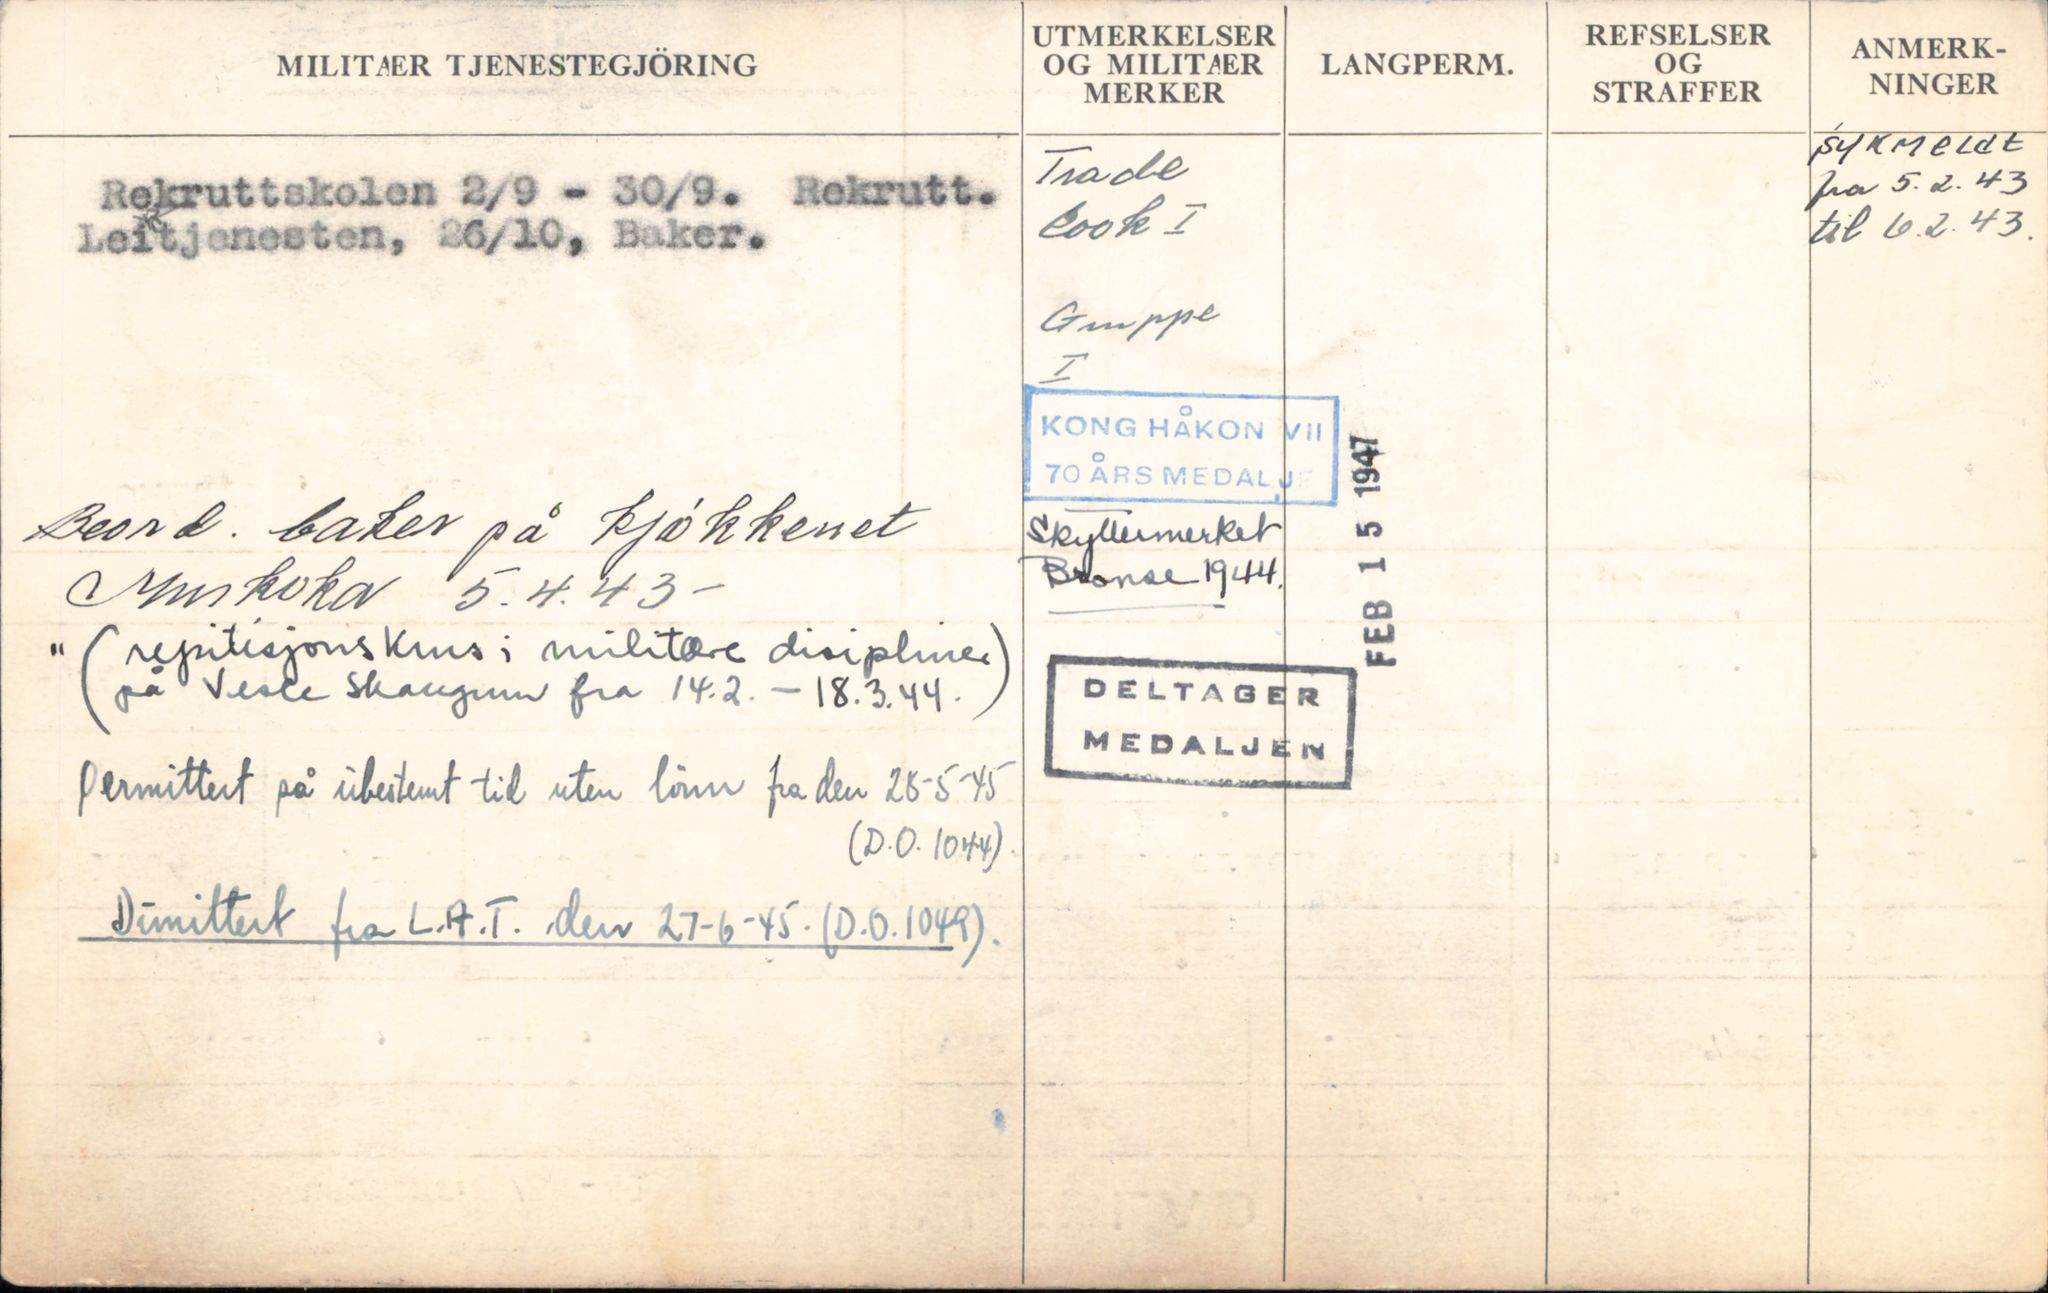 MILITÆR TJENESTEGJÖRING
UTMERKELSER
OG MILITÆR
MERKER
LANGPERM.
REFSELSER
OG
STRAFFER
ANMERK-
NINGER
Rekruttskolen 2/9 - 30/9. Rekrutt.
Leitjenesten, 26/10, Baker.
Beord. baker på kjøkkenet
Muskoka 5.4.43 -
" (repitisjonskurs i militære disipliner)
på Vesle Skaugum fra 14.2. - 18.3.44.)
Permittert på ubestemt tid uten lönn fra den 28-5-45
(D.O. 1044).
Dimittert fra L.A.T. den 27-6-45. (D.O. 1049).
Trade
Cook I
Gruppe
I
KONG HÅKON VII
70 ÅRS MEDALJE
Skyttermerket
Bronse 1944.
DELTAGER
MEDALJEN
FEB 15 1947
sykmeldt
fra 5.2.43
til 6.2.43.